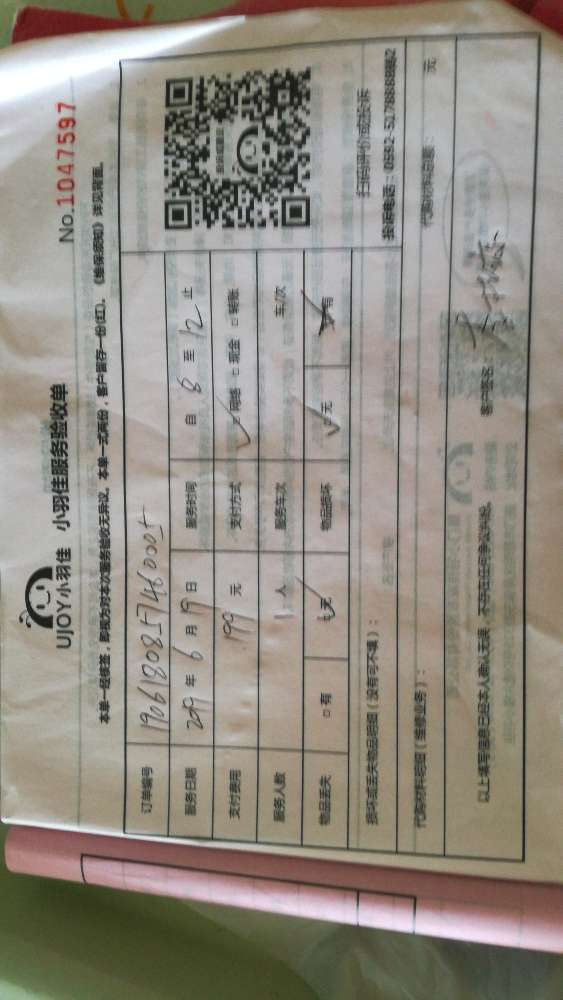 No.1047597
UJOY小羽佳 小羽佳服务验收单
本单一经核签，即视为对本次服务验收无异议。本单一式两份，客户留存一份(红)。《维保须知》详见背面。
订单编号 1906180857480005
服务日期 2019 年 6 月 19 日 服务时间 自 8 至 12 止
支付费用 199 元 支付方式 网络 □现金 □转账
服务人数 1 人 服务车次 车/次
物品丢失 □有 □无 物品损坏 □无 □有
扫码评价或投诉
损坏或丢失物品明细（没有可不填）：
投诉电话：0592-5178888转2
代购材料明细（维修业务）： 代购材料总额： 元
以上填写信息已经本人确认无误，不存在任何争议纠纷。 客户签名：